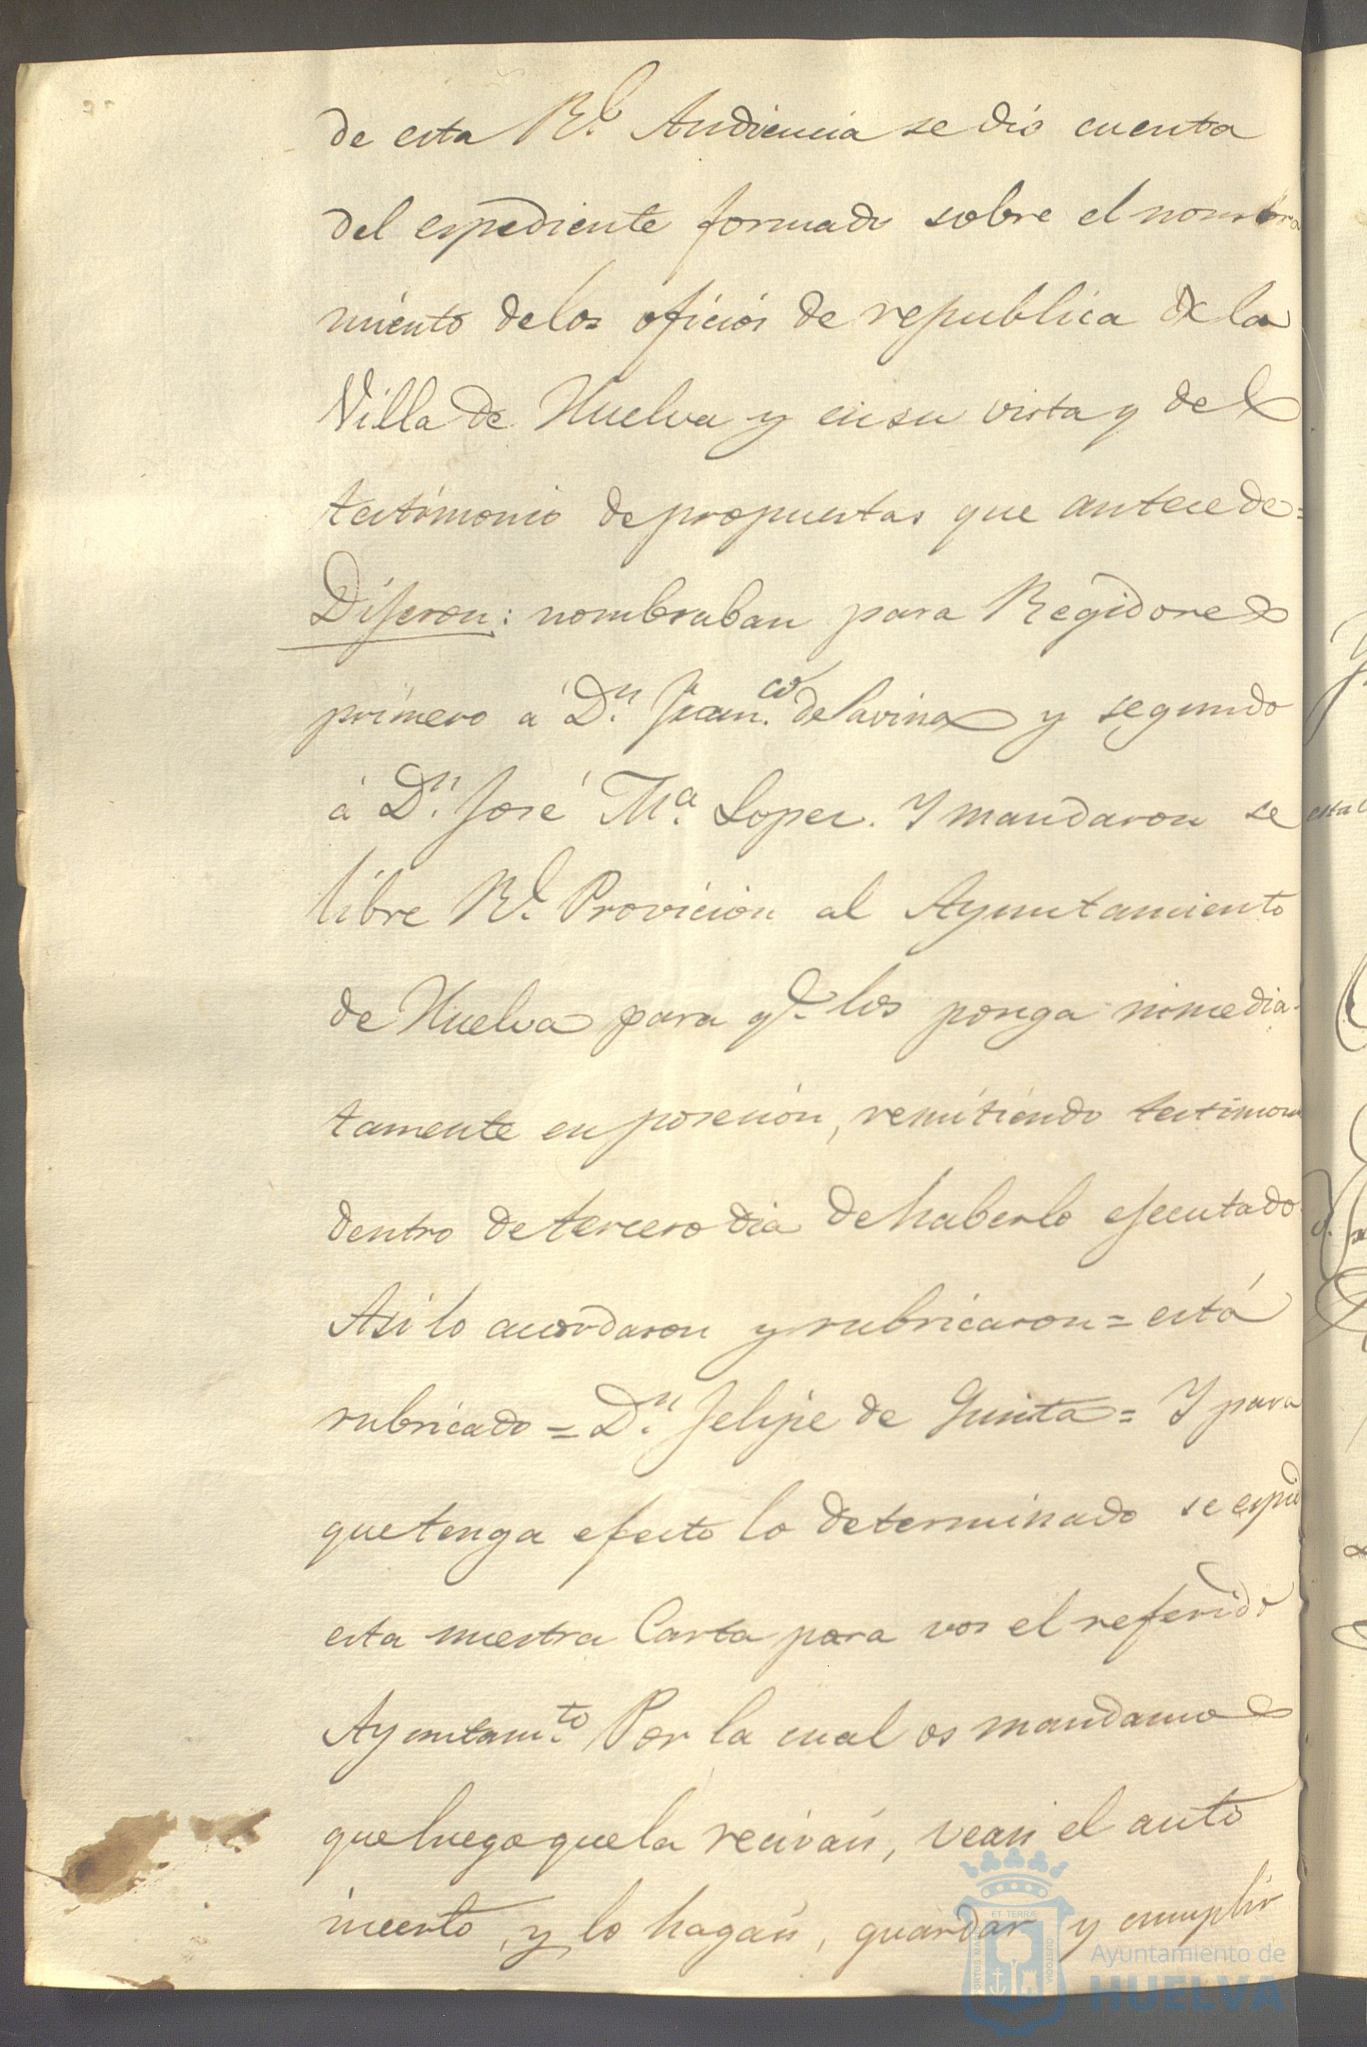 de esta Rl. Audiencia se dió cuenta
del espediente formado sobre el nombra
miento de los oficios de republica de la
Villa de Huelva y en su vista y del
testimonio de propuestas que antecede=
Dijeron: nombraban para Regidores
primero á Dn. Franco. de Lavina y segundo
á Dn. José Ma. Lopez. Y mandaron se
libre Rl. Provicion al Ayuntamiento
de Huelva para qe. los ponga inmedia-
tamente en posesion, remitiendo testimon
dentro de tercero dia de haberlo ejecutado.
Asi lo acordaron y rubricaron = está
rubricado = Dn. Felipe de Quinta = Y para
que tenga efecto lo determinado se espid
esta nuestra Carta para vos el referido
Ayuntamto. Por la cual os mandamos
que luego que la recivais, veais el auto
inserto, y lo hagais, guardar y cumplir
ET TERRÆ
PORTUS MARIS
CUSTODIA
Ayuntamiento de
HUELVA